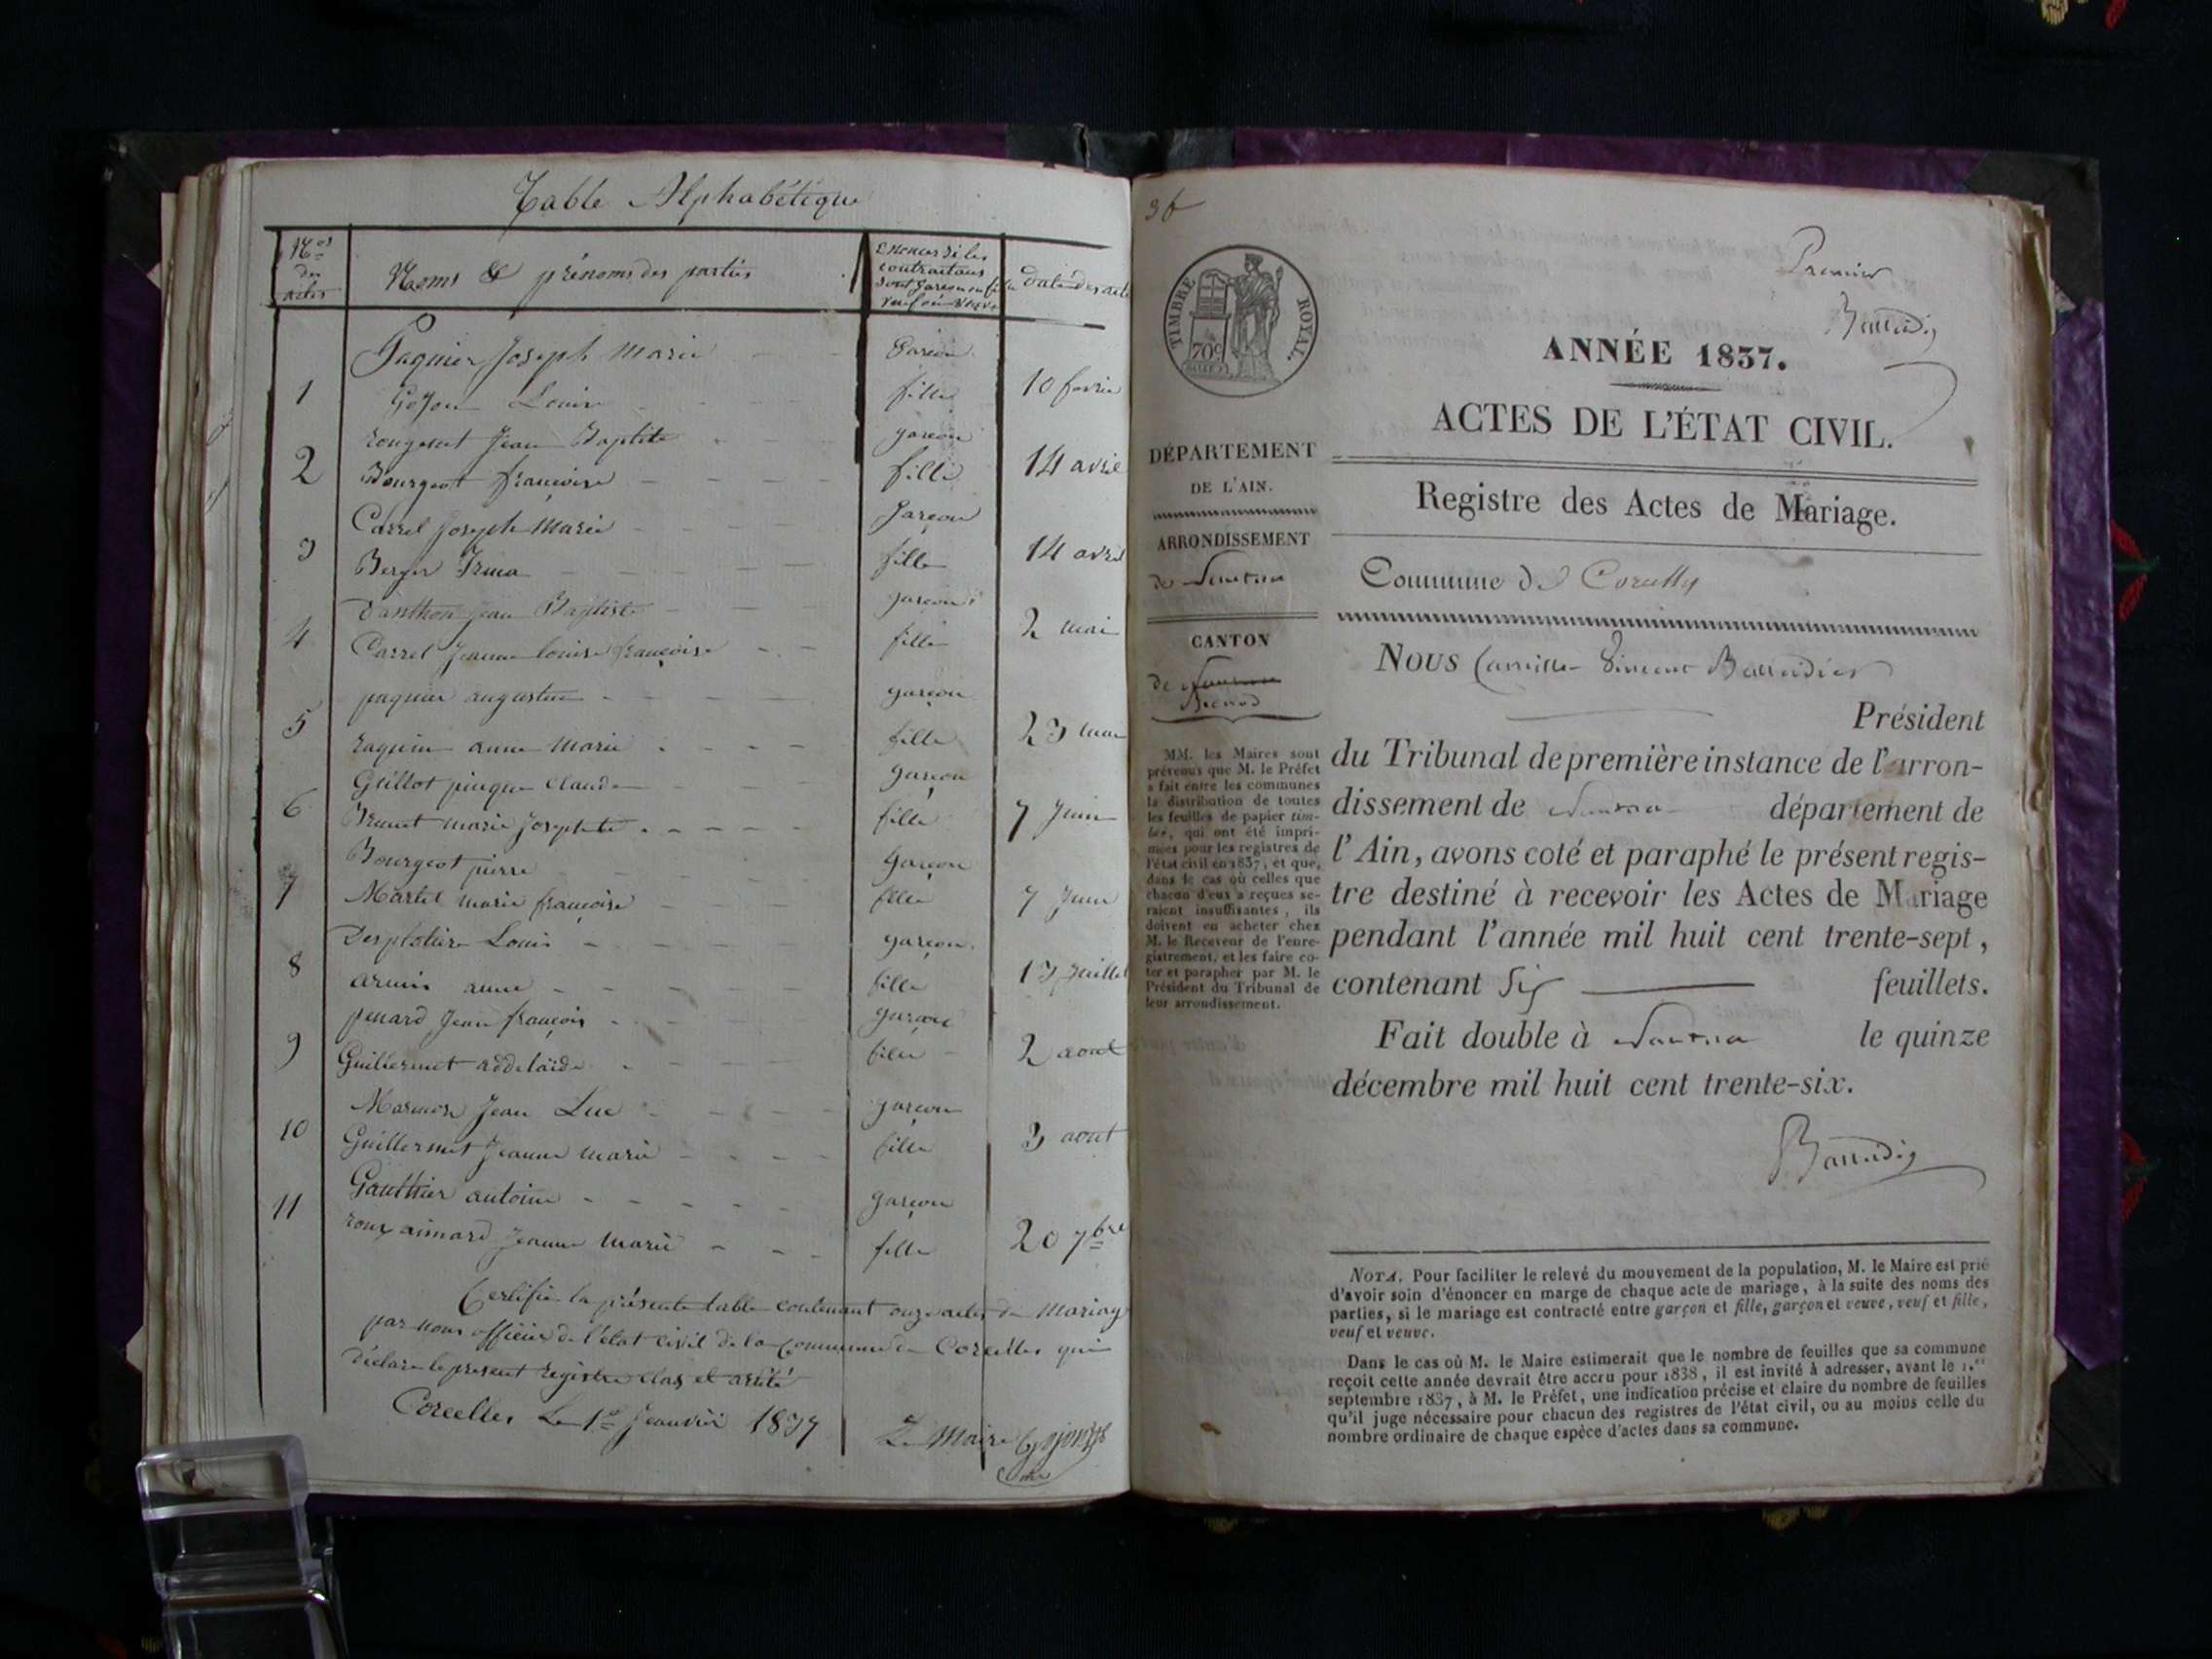 Table Alphabétique
Nos
des
actes
Noms & prénoms des parties
Enoncer si les
contractans
sont garçon ou fille
veuf ou veuve
date des actes
Paquier Joseph Marie garçon
1 Goyon Louise fille 10 fevrier
Jean Baptiste garçon
2 Bourgeot françoise fille 14 avril
Carrel Joseph Marie garçon
3 Berger Irma fille 14 avril
Danthon Jean Baptiste garçon
4 Carrel Jeanne louise françoise fille 2 mai
paquier augustin garçon
5 anne Marie fille 23 mai
Guillot Claude garçon
6 Brunet marie Josephte fille 7 Juin
Bourgeot pierre garçon
7 Martel marie françoise fille 7 Juin
Louis garçon
8 anne fille 13 Juillet
penard Jean françois garçon
9 Guillermet addelaïde fille 2 aout
Jean Luc garçon
10 Guillermet Jeanne marie fille 3 aout
Gauthier antoine garçon
11 roux aimard Jeanne marie fille 20 7bre
Certifié la présente table contenant onze actes de Mariage
par nous officier de l'état civil de la commune de Corcelles qui
déclare le present registre clos et arrêté
Corcelles Le 1er Jeanvier 1837 Le Maire
36
Premier
TIMBRE ROYAL.
70c
ANNÉE 1837.
ACTES DE L'ÉTAT CIVIL.
Registre des Actes de Mariage.
DÉPARTEMENT
DE L'AIN.
ARRONDISSEMENT
de Nantua
CANTON
de Nantua
Brenod
MM. les Maires sont
prévenus que M. le Préfet
a fait entre les communes
la distribution de toutes
les feuilles de papier tim-
bré, qui ont été impri-
mées pour les registres de
l'état civil en 1837, et que,
dans le cas où celles que
chacun d'eux a reçues se-
raient insuffisantes, ils
doivent en acheter chez
M. le Receveur de l'enre-
gistrement, et les faire co-
ter et parapher par M. le
Président du Tribunal de
leur arrondissement.
Commune de Corcelles
NOUS Camille Vincent
Président
du Tribunal de première instance de l'arron-
dissement de Nantua département de
l'Ain, avons coté et paraphé le présent regis-
tre destiné à recevoir les Actes de Mariage
pendant l'année mil huit cent trente-sept,
contenant Six feuillets.
Fait double à Nantua le quinze
décembre mil huit cent trente-six.
NOTA. Pour faciliter le relevé du mouvement de la population, M. le Maire est prié
d'avoir soin d'énoncer en marge de chaque acte de mariage, à la suite des noms des
parties, si le mariage est contracté entre garçon et fille, garçon et veuve, veuf et fille,
veuf et veuve.
Dans le cas où M. le Maire estimerait que le nombre de feuilles que sa commune
reçoit cette année devrait être accru pour 1838, il est invité à adresser, avant le 1.er
septembre 1837, à M. le Préfet, une indication précise et claire du nombre de feuilles
qu'il juge nécessaire pour chacun des registres de l'état civil, ou au moins celle du
nombre ordinaire de chaque espèce d'actes dans sa commune.